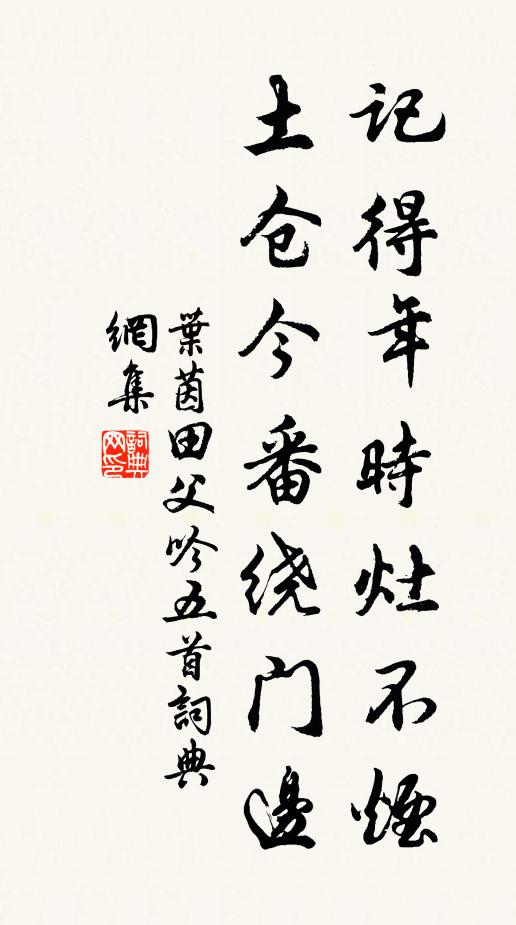 记得年時灶不煙
土仓今番绕门邊
葉茵田父吟五首詞典
網集
詞典网印